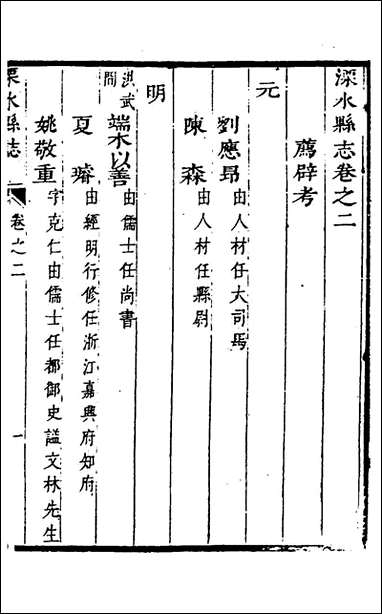 溧水縣志卷之二
薦辟考
元
劉應昂 由人材任大司馬
陳森 由人材任縣尉
明
洪武間 端木以善 由儒士任尚書
夏璿 由經明行修任浙江嘉興府知府
姚敬重 字克仁由儒士任都御史謚文林先生
溧水縣志 卷之二 一